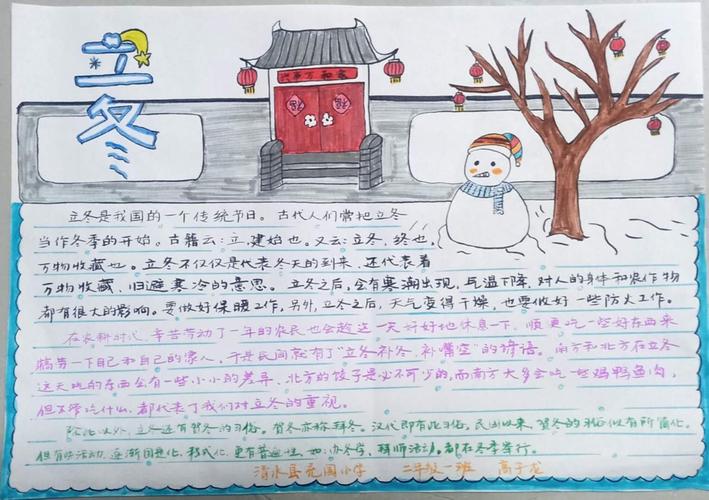 立冬
家和万事兴
福
福
立冬是我国的一个传统节日。古代人们常把立冬
当作冬季的开始。古籍云：立，建始也。又云：立冬，终也，
万物收藏也。立冬不仅仅是代表冬天的到来，还代表着
万物收藏、旧避寒冷的意思。立冬之后，会有寒潮出现，气温下降，对人的身体和农作物
都有很大的影响。要做好保暖工作。另外，立冬之后，天气变得干燥，也要做好一些防火工作。
在农耕时代，辛苦劳动了一年的农民也会趁这一天好好地休息一下，顺更吃一些好东西来
犒劳一下自己和自己的家人，于是民间就有了“立冬补冬，补嘴空”的谚语。南方和北方在立冬
这天吃的东西会有一些小小的差异，北方的饺子是必不可少的，而南方大多会吃一些鸡鸭鱼肉，
但不管吃什么，都代表了我们对立冬的重视。
除此以外，立冬还有贺冬的习俗。贺冬亦称拜冬。汉代即有此习俗。民国以来，贺冬的习俗似有所简化。
但有些活动，逐渐固定化、形式化、更有普遍性。如：办冬学、拜师活动。都在冬季举行。
清水县 园小学 二年级一班 高子龙